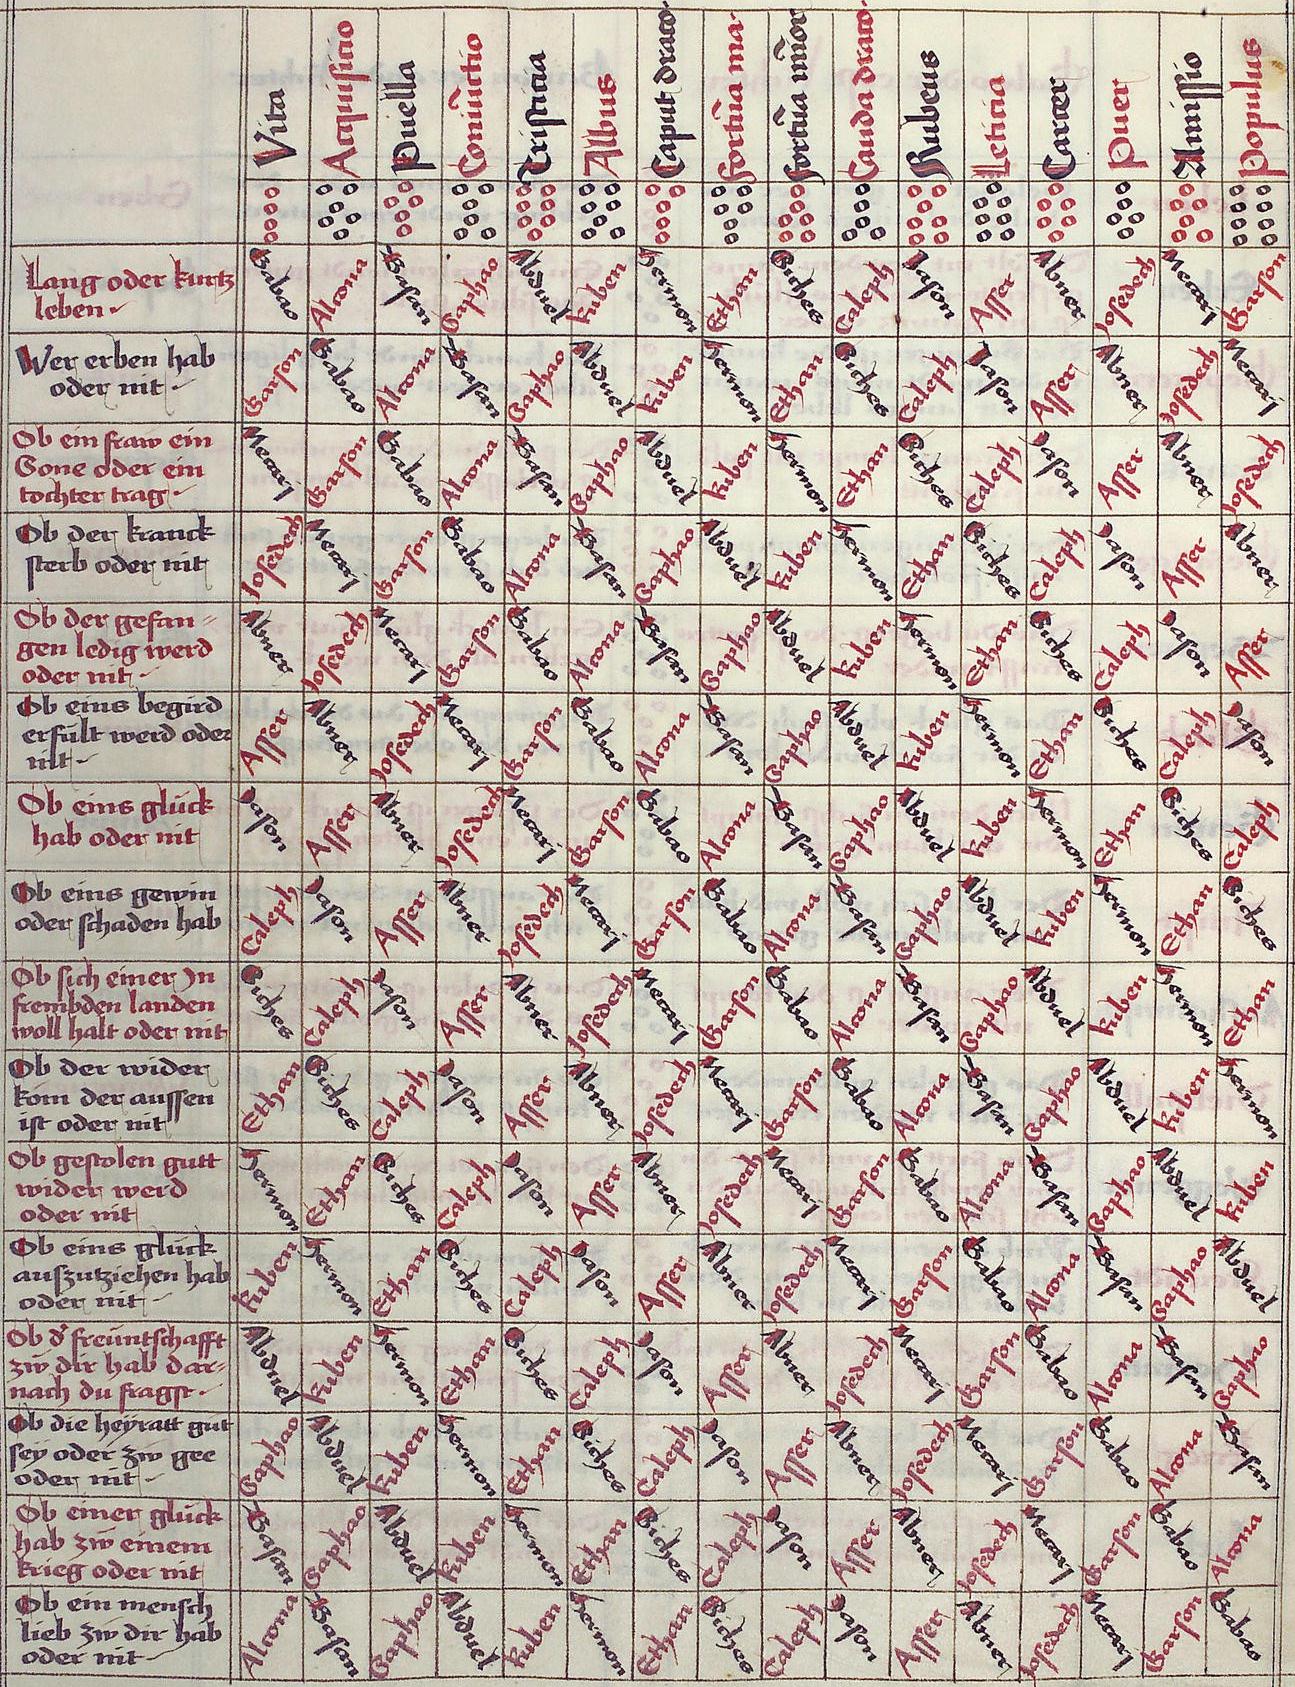 Vita Acquisicio Puella Coniūctio Tristicia Albus Caput draco· fortūa ma· fortūa mīor Cauda draco· Rubeus Leticia Carcer Puer Amissio Populus
Lang oder kurtz
leben
Babao Alcona Basan Caphao Abduel kuben hermon Ethan Biches Caleph Jason Asser Abner Josedech Merari Garson
Wer erben hab
oder nit
Garson Babao Alcona Basan Caphao Abduel kuben hermon Ethan Biches Caleph Jason Asser Abner Josedech Merari
Ob ein fraw ein
Sone oder ein
tochter trag
Merari Garson Babao Alcona Basan Caphao Abduel kuben hermon Ethan Biches Caleph Jason Asser Abner Josedech
Ob der kranck
sterb oder nit
Josedech Merari Garson Babao Alcona Basan Caphao Abduel kuben hermon Ethan Biches Caleph Jason Asser Abner
Ob der gefan=
gen ledig werd
oder nit
Abner Josedech Merari Garson Babao Alcona Basan Caphao Abduel kuben hermon Ethan Biches Caleph Jason Asser
Ob eins begird
erfult werd oder
nit
Asser Abner Josedech Merari Garson Babao Alcona Basan Caphao Abduel kuben hermon Ethan Biches Caleph Jason
Ob eins glück
hab oder nit
Jason Asser Abner Josedech Merari Garson Babao Alcona Basan Caphao Abduel kuben hermon Ethan Biches Caleph
Ob eins gewin
oder schaden hab
Caleph Jason Asser Abner Josedech Merari Garson Babao Alcona Basan Caphao Abduel kuben hermon Ethan Biches
Ob sich einer Jn
frembden landen
woll halt oder nit
Biches Caleph Jason Asser Abner Josedech Merari Garson Babao Alcona Basan Caphao Abduel kuben hermon Ethan
Ob der wider
kom der aussen
ist oder nit
Ethan Biches Caleph Jason Asser Abner Josedech Merari Garson Babao Alcona Basan Caphao Abduel kuben hermon
Ob gestolen gutt
wider werd
oder nit
hermon Ethan Biches Caleph Jason Asser Abner Josedech Merari Garson Babao Alcona Basan Caphao Abduel kuben
Ob eins glück
auszutziehen hab
oder nit
kuben hermon Ethan Biches Caleph Jason Asser Abner Josedech Merari Garson Babao Alcona Basan Caphao Abduel
Ob d' freüntschafft
zw dir hab dar=
nach du fragst
Abduel kuben hermon Ethan Biches Caleph Jason Asser Abner Josedech Merari Garson Babao Alcona Basan Caphao
Ob die heyratt gut
sey oder zw gee
oder nit
Caphao Abduel kuben hermon Ethan Biches Caleph Jason Asser Abner Josedech Merari Garson Babao Alcona Basan
Ob einer glück
hab zw einem
krieg oder nit
Basan Caphao Abduel kuben hermon Ethan Biches Caleph Jason Asser Abner Josedech Merari Garson Babao Alcona
Ob ein mensch
lieb zw dir hab
oder nit
Alcona Basan Caphao Abduel kuben hermon Ethan Biches Caleph Jason Asser Abner Josedech Merari Garson Babao